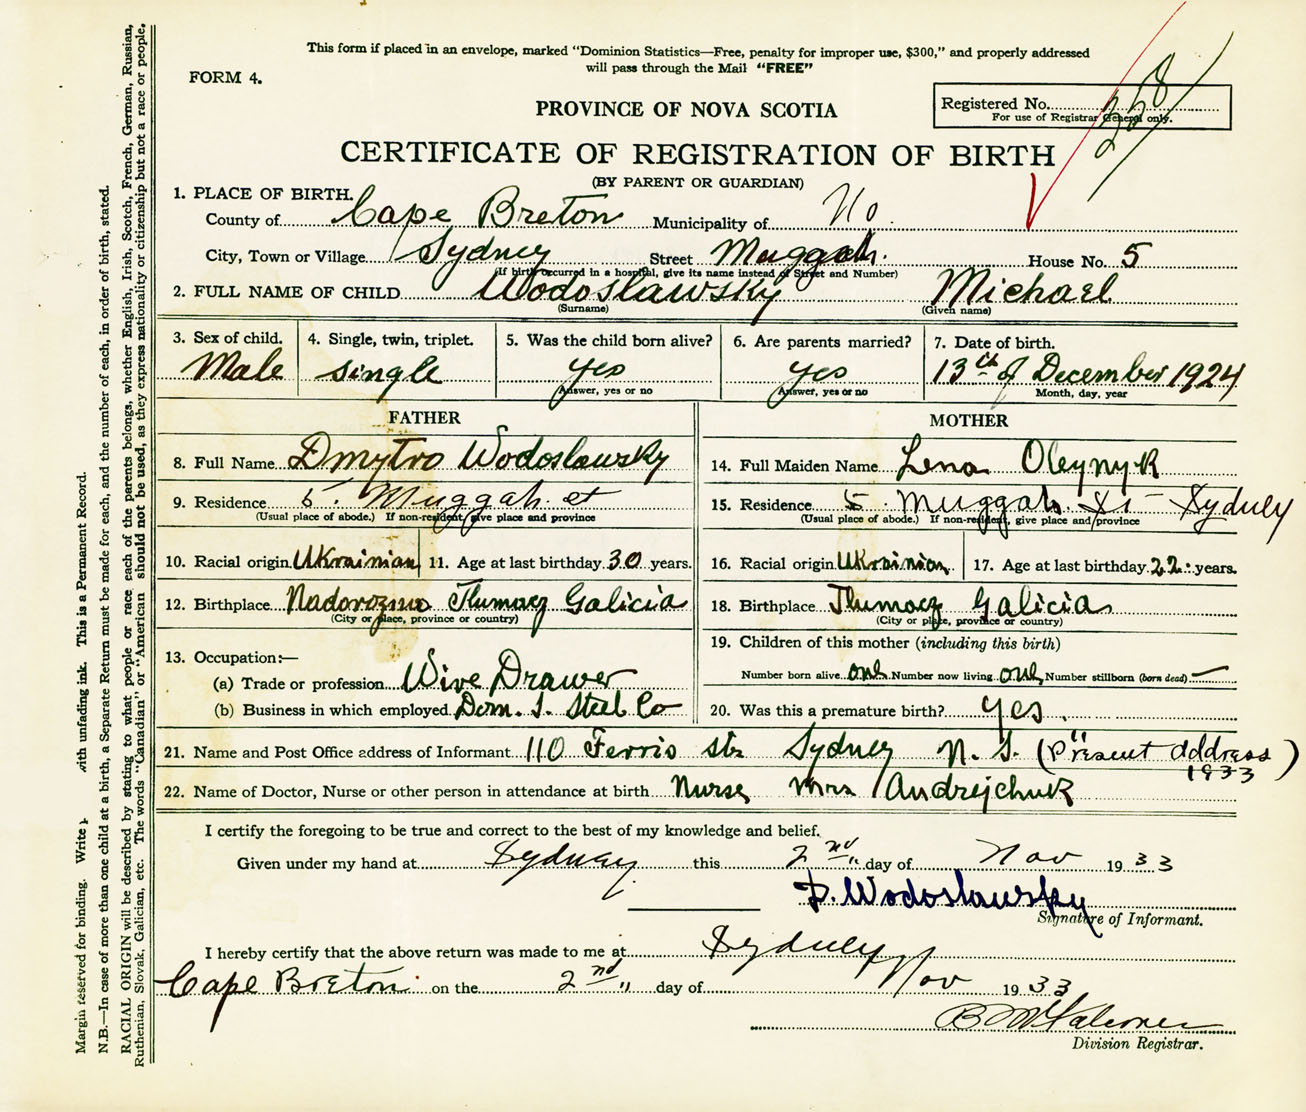 This form if placed in an envelope, marked "Dominion Statistics—Free, penalty for improper use, $300," and properly addressed
will pass through the Mail "FREE"
FORM 4.
PROVINCE OF NOVA SCOTIA
Registered No. 228
For use of Registrar General only.
CERTIFICATE OF REGISTRATION OF BIRTH
(BY PARENT OR GUARDIAN)
1. PLACE OF BIRTH.
County of Cape Breton Municipality of No
City, Town or Village Sydney Street Muggah. House No. 5
(If birth occurred in a hospital, give its name instead of Street and Number)
2. FULL NAME OF CHILD Wodoslawsky Michael
(Surname) (Given name)
3. Sex of child. 4. Single, twin, triplet. 5. Was the child born alive? 6. Are parents married? 7. Date of birth.
Male single yes yes 13th of December 1924
Answer, yes or no Answer, yes or no Month, day, year
FATHER MOTHER
8. Full Name Dmytro Wodoslawsky 14. Full Maiden Name Lena Oleynyk
9. Residence 5. Muggah. st 15. Residence 5 Muggah. St - Sydney
(Usual place of abode.) If non-resident, give place and province (Usual place of abode.) If non-resident, give place and province
10. Racial origin Ukrainian 11. Age at last birthday 30 years. 16. Racial origin Ukrainian 17. Age at last birthday 22 years.
12. Birthplace Tlumacz Galicia 18. Birthplace Tlumacz Galicia
(City or place, province or country) (City or place, province or country)
19. Children of this mother (including this birth)
13. Occupation:—
(a) Trade or profession Wire Drawer Number born alive one Number now living one Number stillborn (born dead) —
(b) Business in which employed Dom. I. Steel Co 20. Was this a premature birth? yes.
21. Name and Post Office address of Informant 110 Ferris str Sydney N. S. (Present address 1933)
22. Name of Doctor, Nurse or other person in attendance at birth Nurse, Mrs Andrejchuk
I certify the foregoing to be true and correct to the best of my knowledge and belief.
Given under my hand at Sydney this 2nd day of Nov 1933
D. Wodoslawsky
Signature of Informant.
I hereby certify that the above return was made to me at Sydney
Cape Breton on the 2nd day of Nov 1933
Division Registrar.
Margin reserved for binding. Write with unfading ink. This is a Permanent Record.
N.B.—In case of more than one child at a birth, a Separate Return must be made for each, and the number of each, in order of birth, stated.
RACIAL ORIGIN will be described by stating to what people or race each of the parents belongs, whether English, Irish, Scotch, French, German, Russian,
Ruthenian, Slovak, Galician, etc. The words "Canadian" or "American" should not be used, as they express nationality or citizenship but not a race or people.